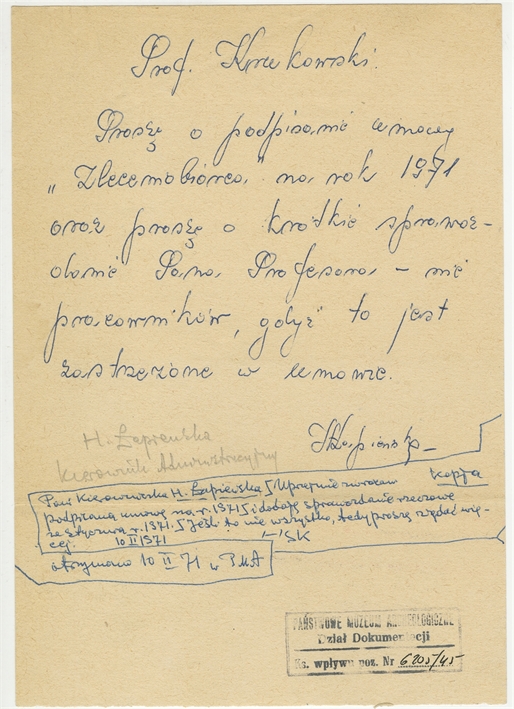 Prof. Krukowski.
Proszę o podpisanie umowy
"Zleceniobiorca" na rok 1971
oraz proszę o krótkie sprawoz-
danie Pana Profesora - nie
pracowników, gdyż to jest
zastrzeżone w umowie.
HŁapieńska
H. Łapieńska
Kierownik Administracyjny
kopja
Pani Kierowniczka H. Łapieńska / Uprzejmie zwracam
podpisaną umowę na r. 1971 i dodaję sprawozdanie rzeczowe
za styczeń r. 1971. / Jeśli to nie wszystko, tedy proszę żądać wię-
cej. 10 II 1971 /-/ SK
otrzymano 10 II 71 w PMA
PAŃSTWOWE MUZEUM ARCHEOLOGICZNE
Dział Dokumentacji
Ks. wpływu poz. Nr 6205/45